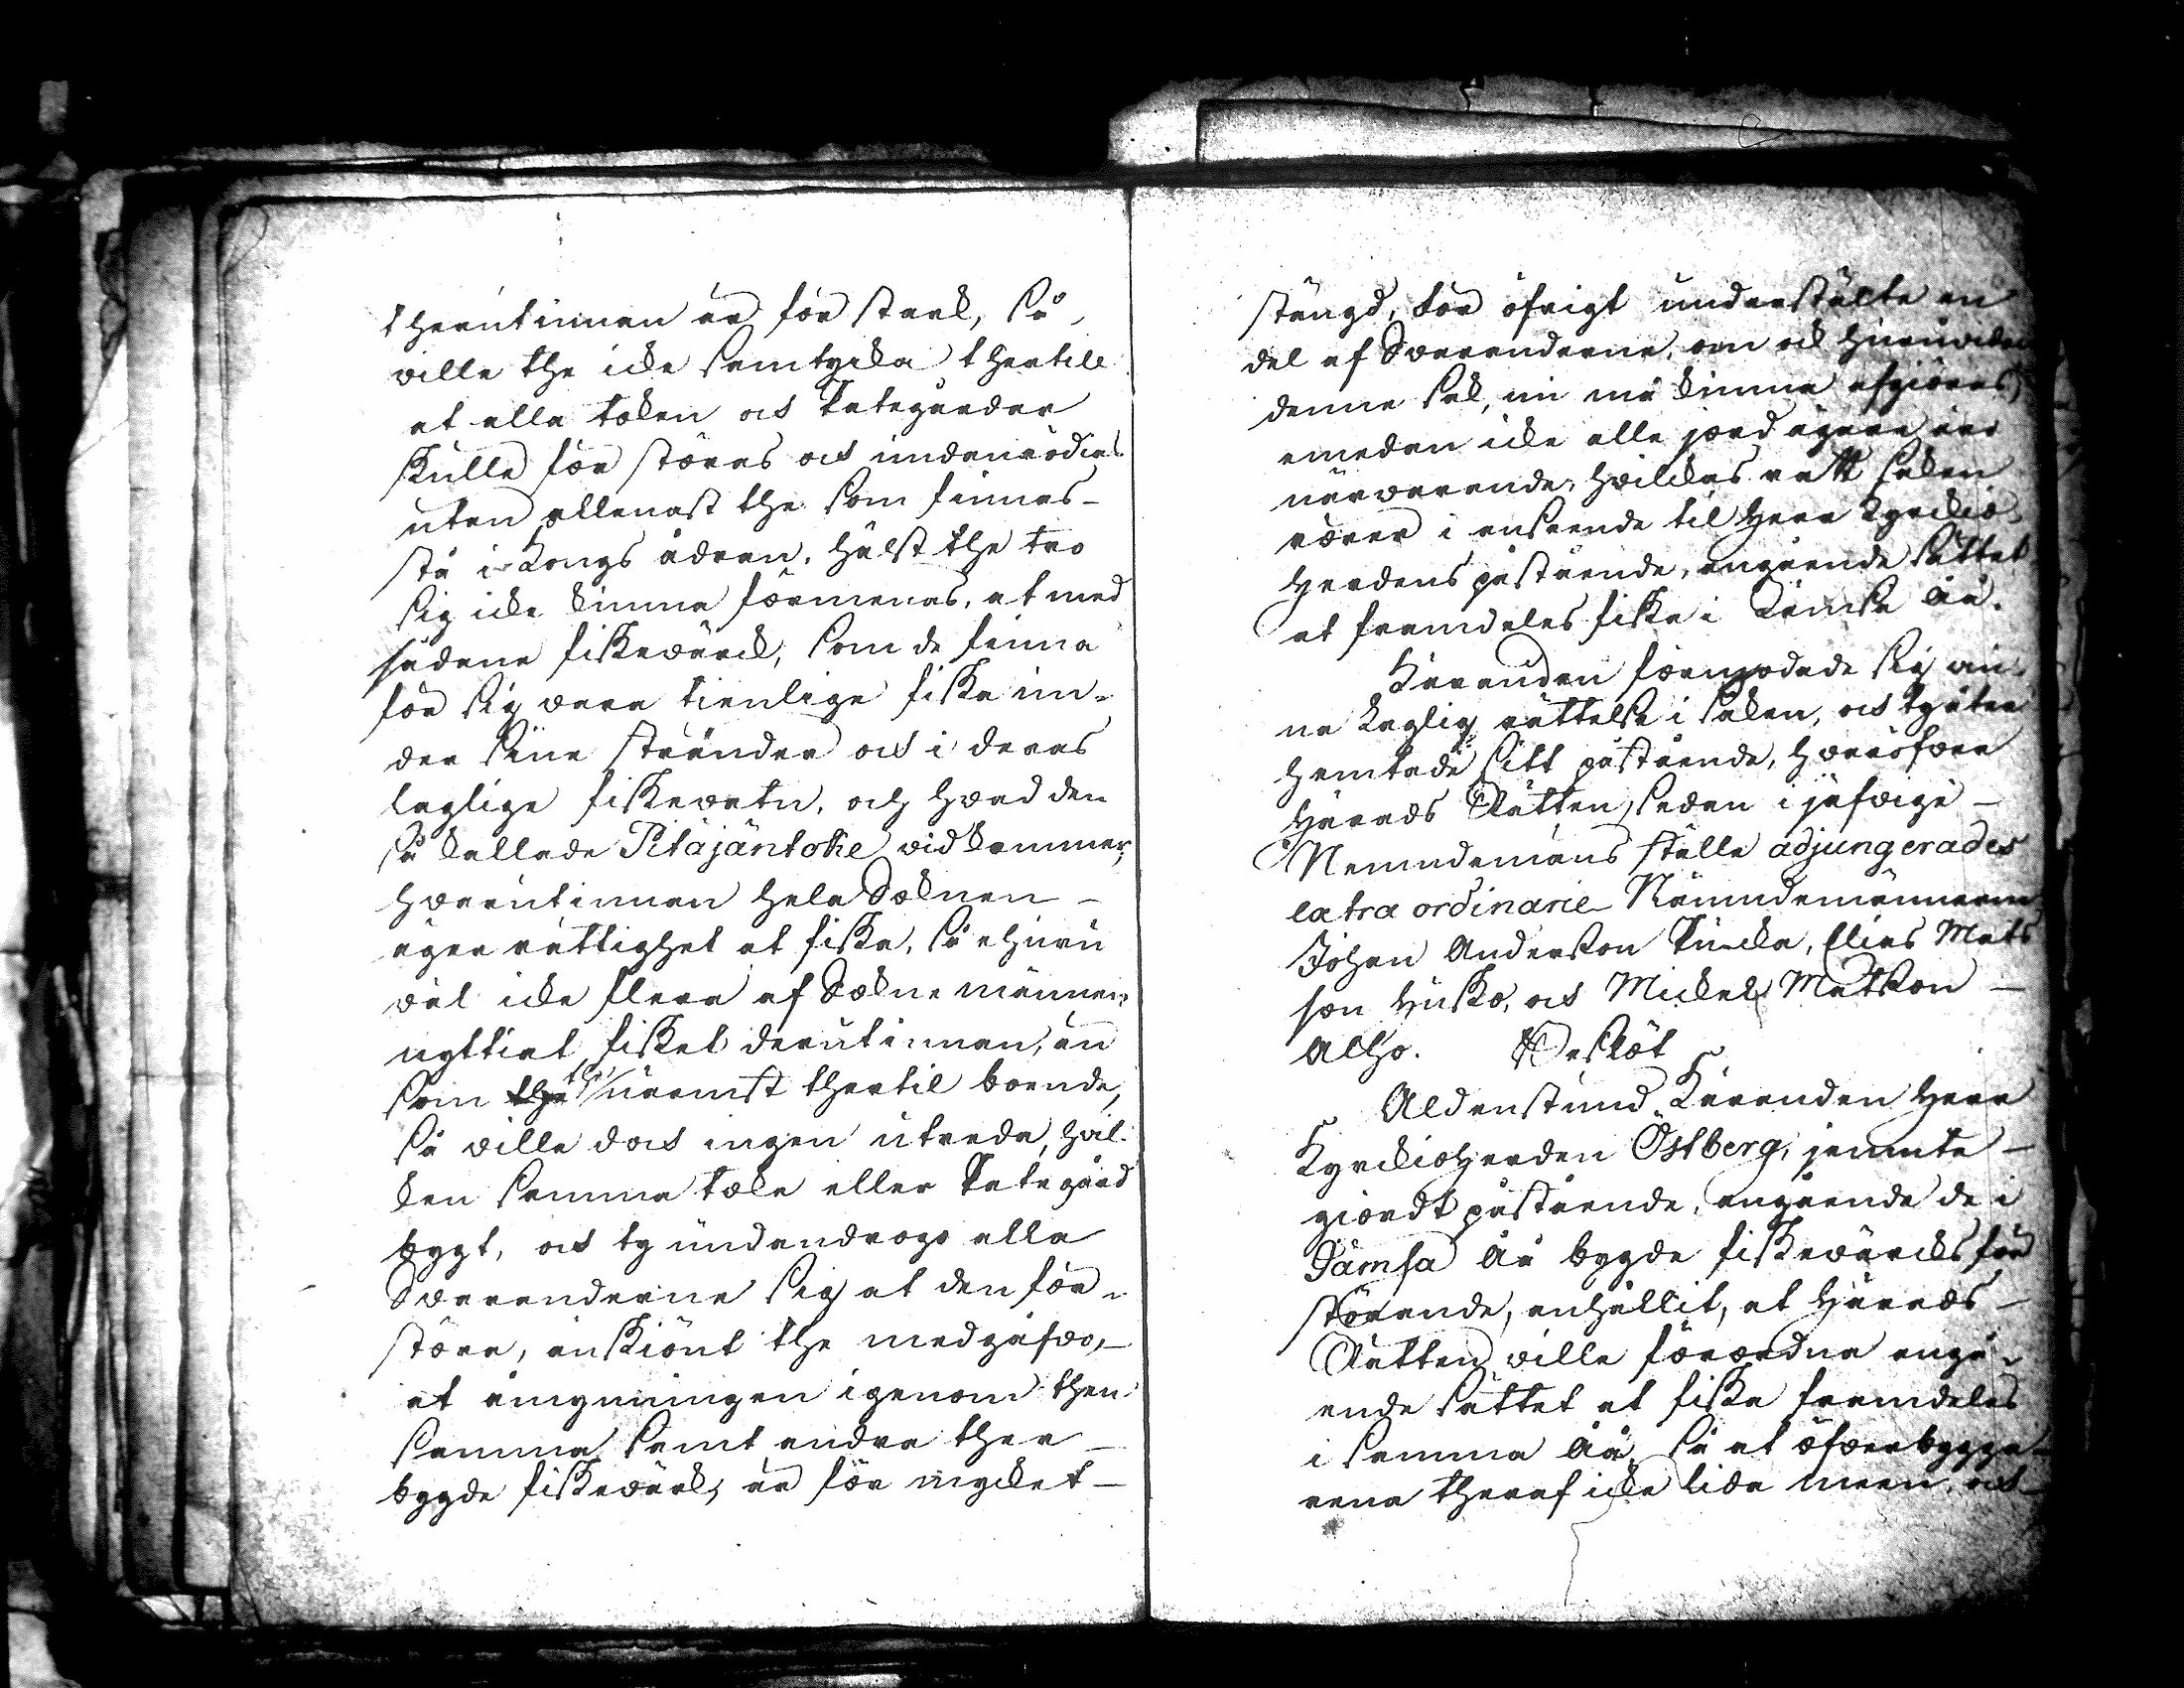 therutinnan är för stark, så
wille the icke samtycka thertill
at alla token och Pategårdar
skulle förstöras och undanrödias
utan allenast the som finnas
stå i Kongs ådran, hälst the tro
sig icke kunna förmenas, at med
sådana fiskewärck, som de finna
för sig wara tienlige fiska un-
der sina stränder och i deras
laglige fiskewatn, och hwad den
så kallade Pitäjäntoke widkommer,
hwarutinnan hela Soknen
äger rättighet at fiska, så ehuru
wäl icke flera af Soknemännen
nyttiat fisket derutinnan, än
som the närmst thertil boende,
så wille doch ingen utreda, hwil-
ken samma toke eller Pategård
bygt, och ty undandrogo alla
Swaranderne sig at den för-
störa, änskiönt the medgåfwo,
at ämynningen igenom then
samma samt andra ther
bygde fiskewärck, är för mycket
stängd, För öfrigt understälte en
del af Swaranderne, om och huruwida
denna sak, nu må kunna afgiöras,
emedan icke alla jordägare äro
närwarande, hwilckas rätt saken
rörer i anseende til Herr Kyrckio-
herdens påstående, angående sättet
at framdeles fiska i Jämsä Åå.
Käranden förmodade sig win-
na laglig rättelse i saken, och ytter
hemtade sitt påstående, hwaröfwer
Härads Rätten, sedan i jäfwige
Nemndemäns ställe adjungerades
extra ordinarie Nämndemännerne
Johan Andersson Puncka, Elias Mats
son Husko, och Mickel Matsson
Alho. Resköt
Aldenstund Käranden Herr
Kyrckioherden Östberg, jemnte
giordt påstående, angående de i
Jämsä Åå bygde fiskewärcks för
störande, anhållit, at Härads
Rätten wille förordna angå-
ende sättet at fiska framdeles
i samma Åå, så at öfwerbyggar-
rena theraf icke lida meen, och